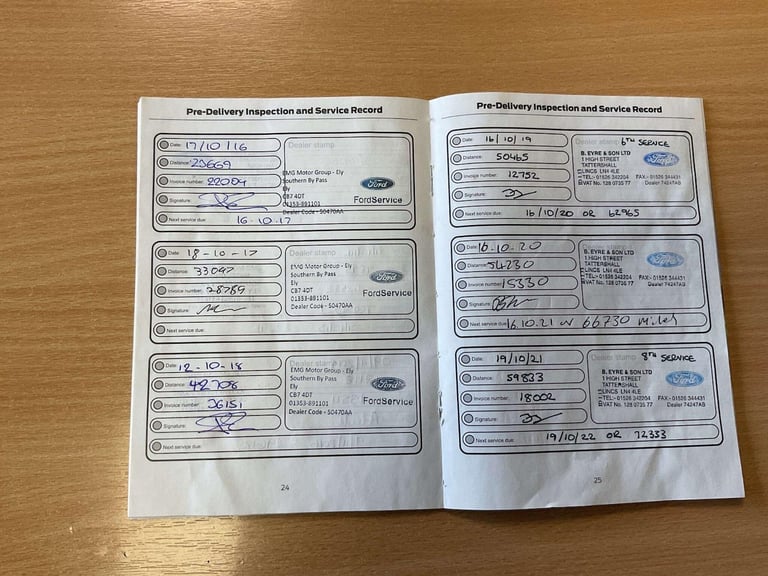 Pre-Delivery Inspection and Service Record
Date: 17/10/16
Dealer stamp
Distance: 23669
Invoice number: 22004
Signature:
EMG Motor Group - Ely
Southern By Pass
Ely
CB7 4DT
01353-891101
Dealer Code - 50470AA
Ford
FordService
Next service due: 16-10-17
Date: 18-10-17
Dealer stamp
Distance: 33097
Invoice number: 28789
Signature:
EMG Motor Group - Ely
Southern By Pass
Ely
CB7 4DT
01353-891101
Dealer Code - 50470AA
Ford
FordService
Next service due:
Date: 12-10-18
Dealer stamp
Distance: 42708
Invoice number: 36151
Signature:
EMG Motor Group - Ely
Southern By Pass
Ely
CB7 4DT
01353-891101
Dealer Code - 50470AA
Ford
FordService
Next service due:
24
Pre-Delivery Inspection and Service Record
Date: 16/10/19
Dealer stamp 6TH SERVICE
Distance: 50465
Invoice number: 12752
Signature:
B. EYRE & SON LTD
1 HIGH STREET
TATTERSHALL
LINCS LN4 4LE
TEL:- 01526 342204 FAX:- 01526 344431
VAT No. 128 0735 77 Dealer 74247AB
Ford
Next service due: 16/10/20 OR 62965
Date: 16.10.20
Distance: 54230
Invoice number: 15330
Signature:
B. EYRE & SON LTD
1 HIGH STREET
TATTERSHALL
LINCS LN4 4LE
TEL:- 01526 342204 FAX:- 01526 344431
VAT No. 128 0735 77 Dealer 74247AB
Ford
Next service due: 16.10.21 or 66730 Miles
Date: 19/10/21
Dealer stamp 8TH SERVICE
Distance: 59833
Invoice number: 18002
Signature:
B. EYRE & SON LTD
1 HIGH STREET
TATTERSHALL
LINCS LN4 4LE
TEL:- 01526 342204 FAX:- 01526 344431
VAT No. 128 0735 77 Dealer 74247AB
Ford
Next service due: 19/10/22 OR 72333
25